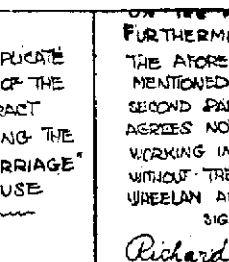 PLICATE
OF THE
RACT
NG THE
RRIAGE"
USE
FURTHERM
THE AFORE
MENTIONED
SECOND PAR
AGREES NO
WORKING IN
WITHOUT THE
WHEELAN A
SIG
Richard